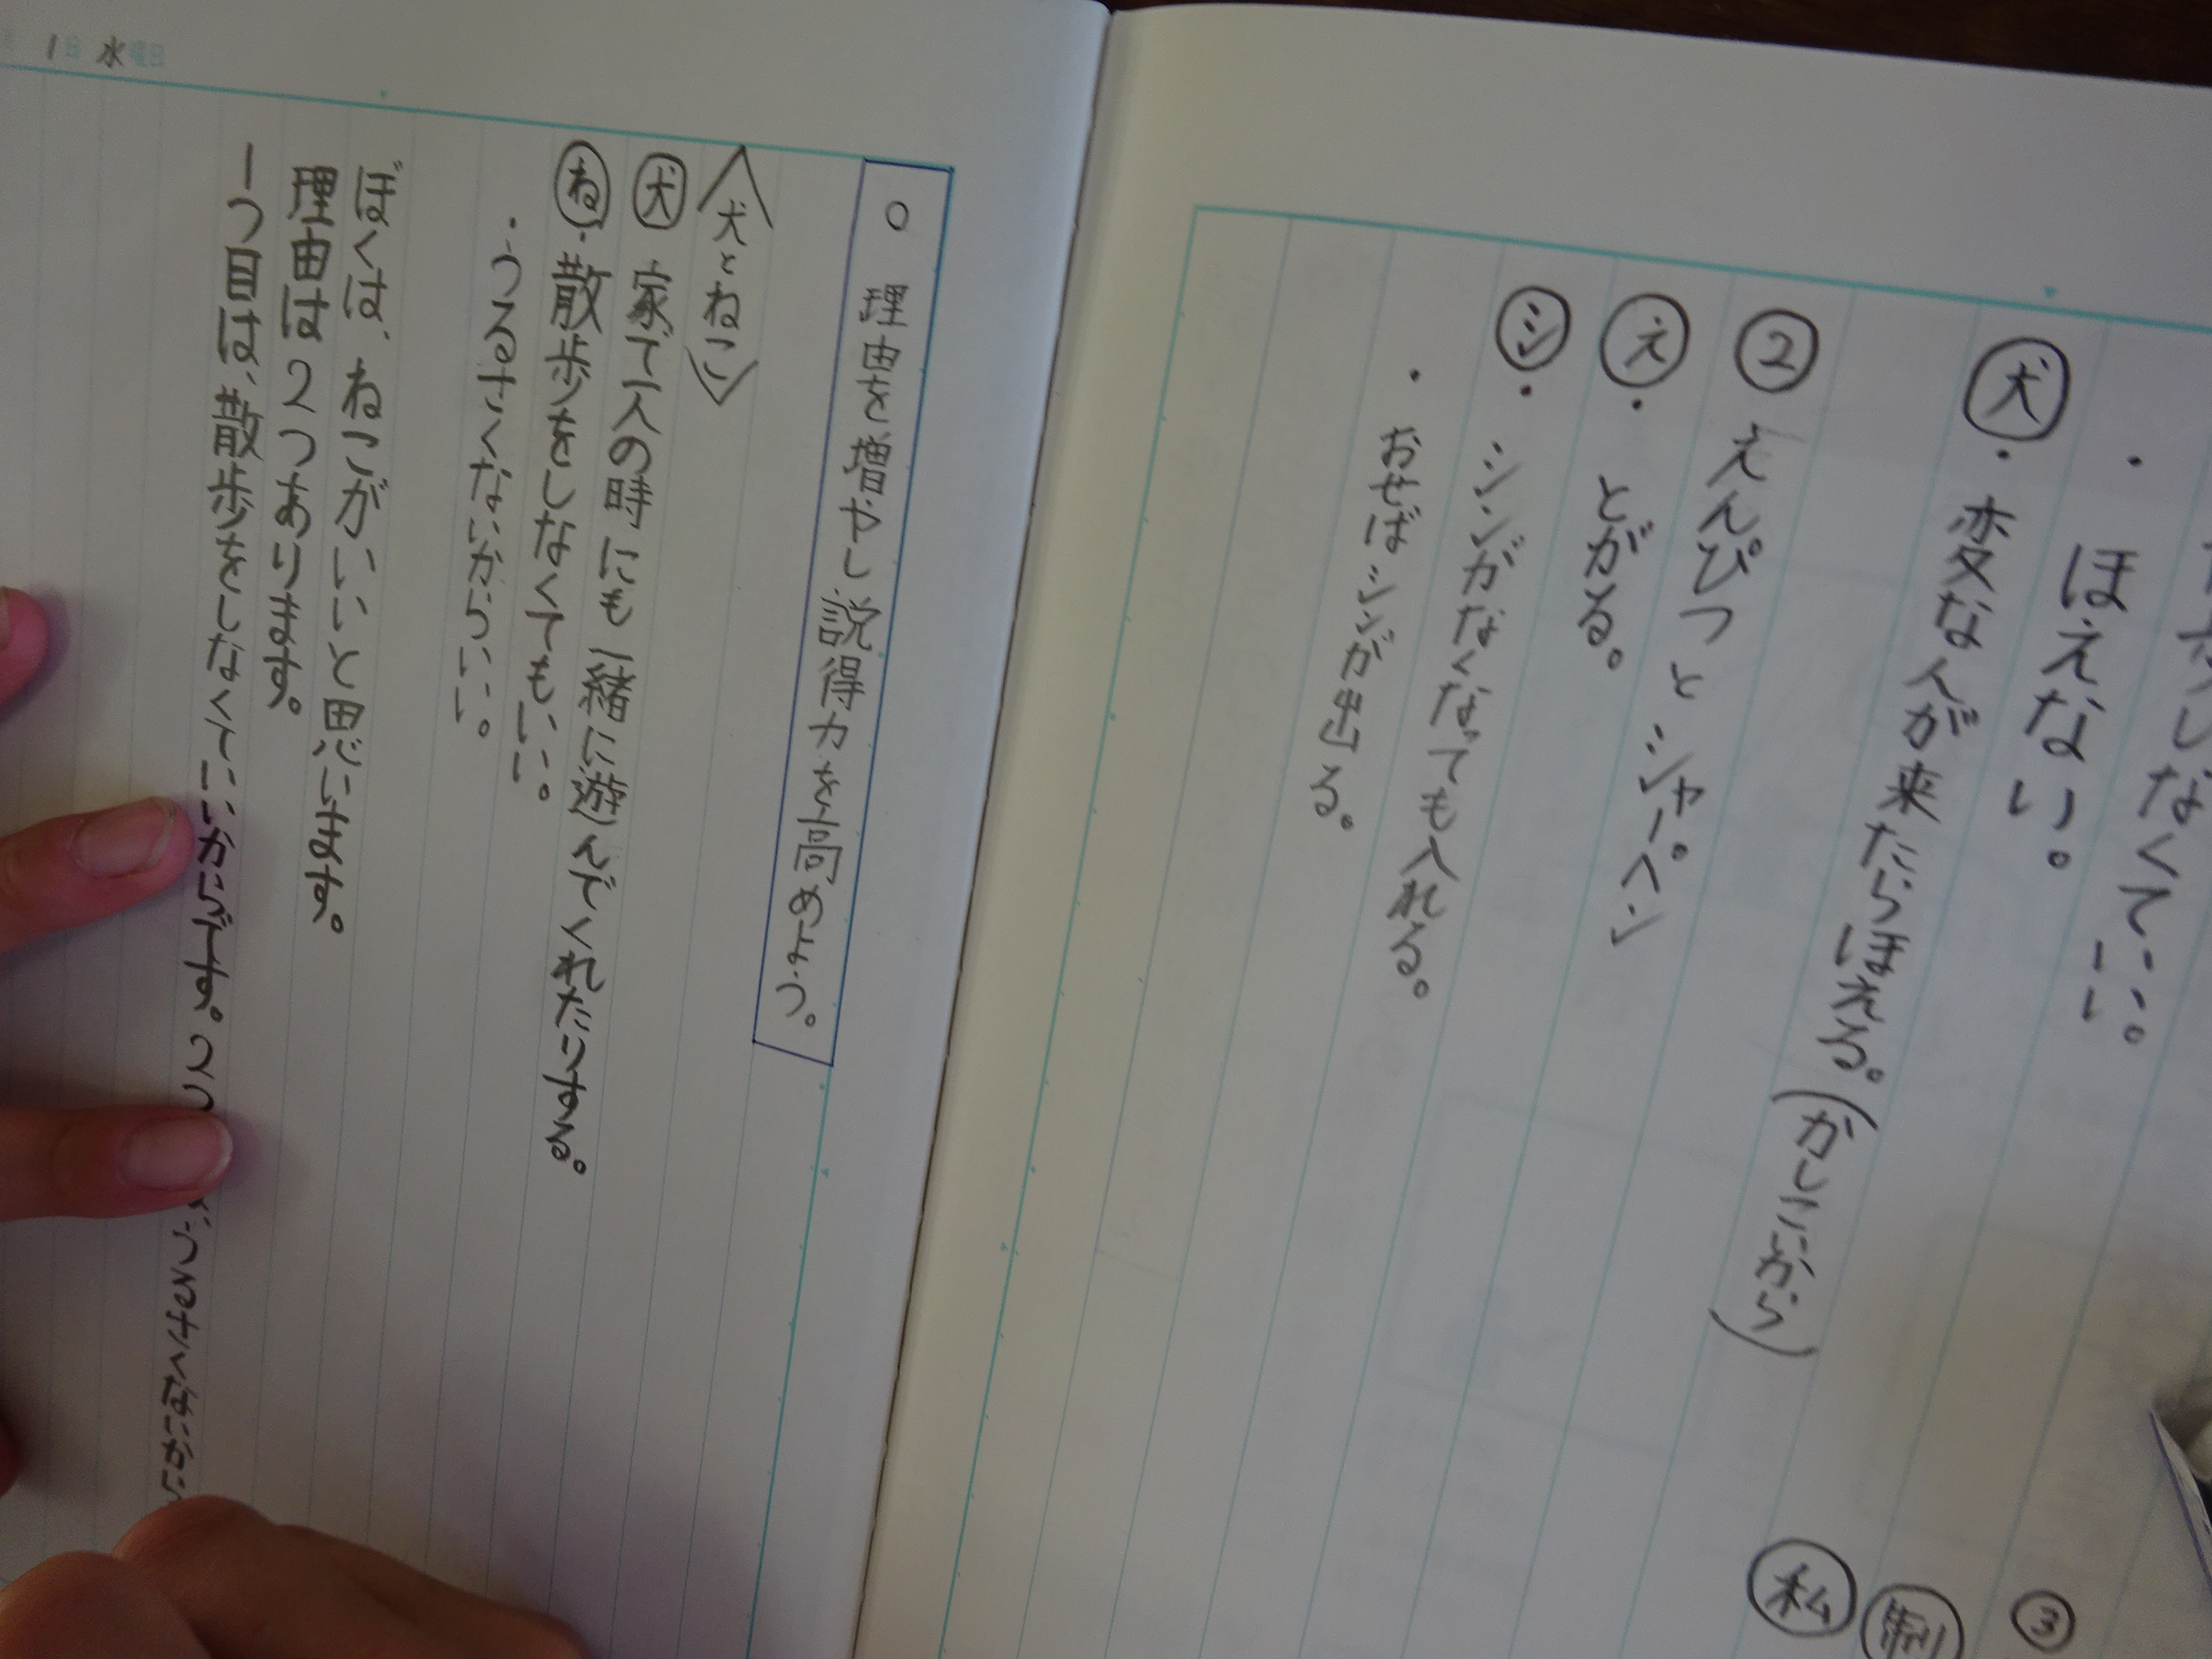 ・ほえない。
犬・変な人が来たらほえる。(かしこいから)
② えんぴつとシャーペン
え・とがる。
シ・シンがなくなっても入れる。
・おせばシンが出る。
③
制
私
○ 理由を増やし説得力を高めよう。
〈犬とねこ〉
犬 家で一人の時にも一緒に遊んでくれたりする。
ね・散歩をしなくてもいい。
・うるさくないからいい。
ぼくは、ねこがいいと思います。
理由は2つあります。
1つ目は、散歩をしなくていいからです。2つ
うるさくないから
1日 水曜日